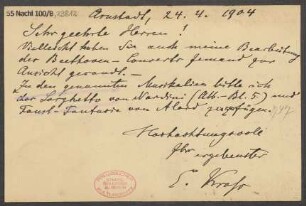 55 Nachl 100/B,
Arnstadt, 24. 4. 1904
Sehr geehrte Herren!
Vielleicht haben Sie auch meine Bearbeitung
des Beethoven-Concerts jemand zur
Ansicht gesandt. –
Zu den genannten Musikalien bitte ich
das Larghetto von Nardini und
Faust-Fantasie von Alard zuzufügen.
Hochachtungsvoll
Ihr ergebenster
E.